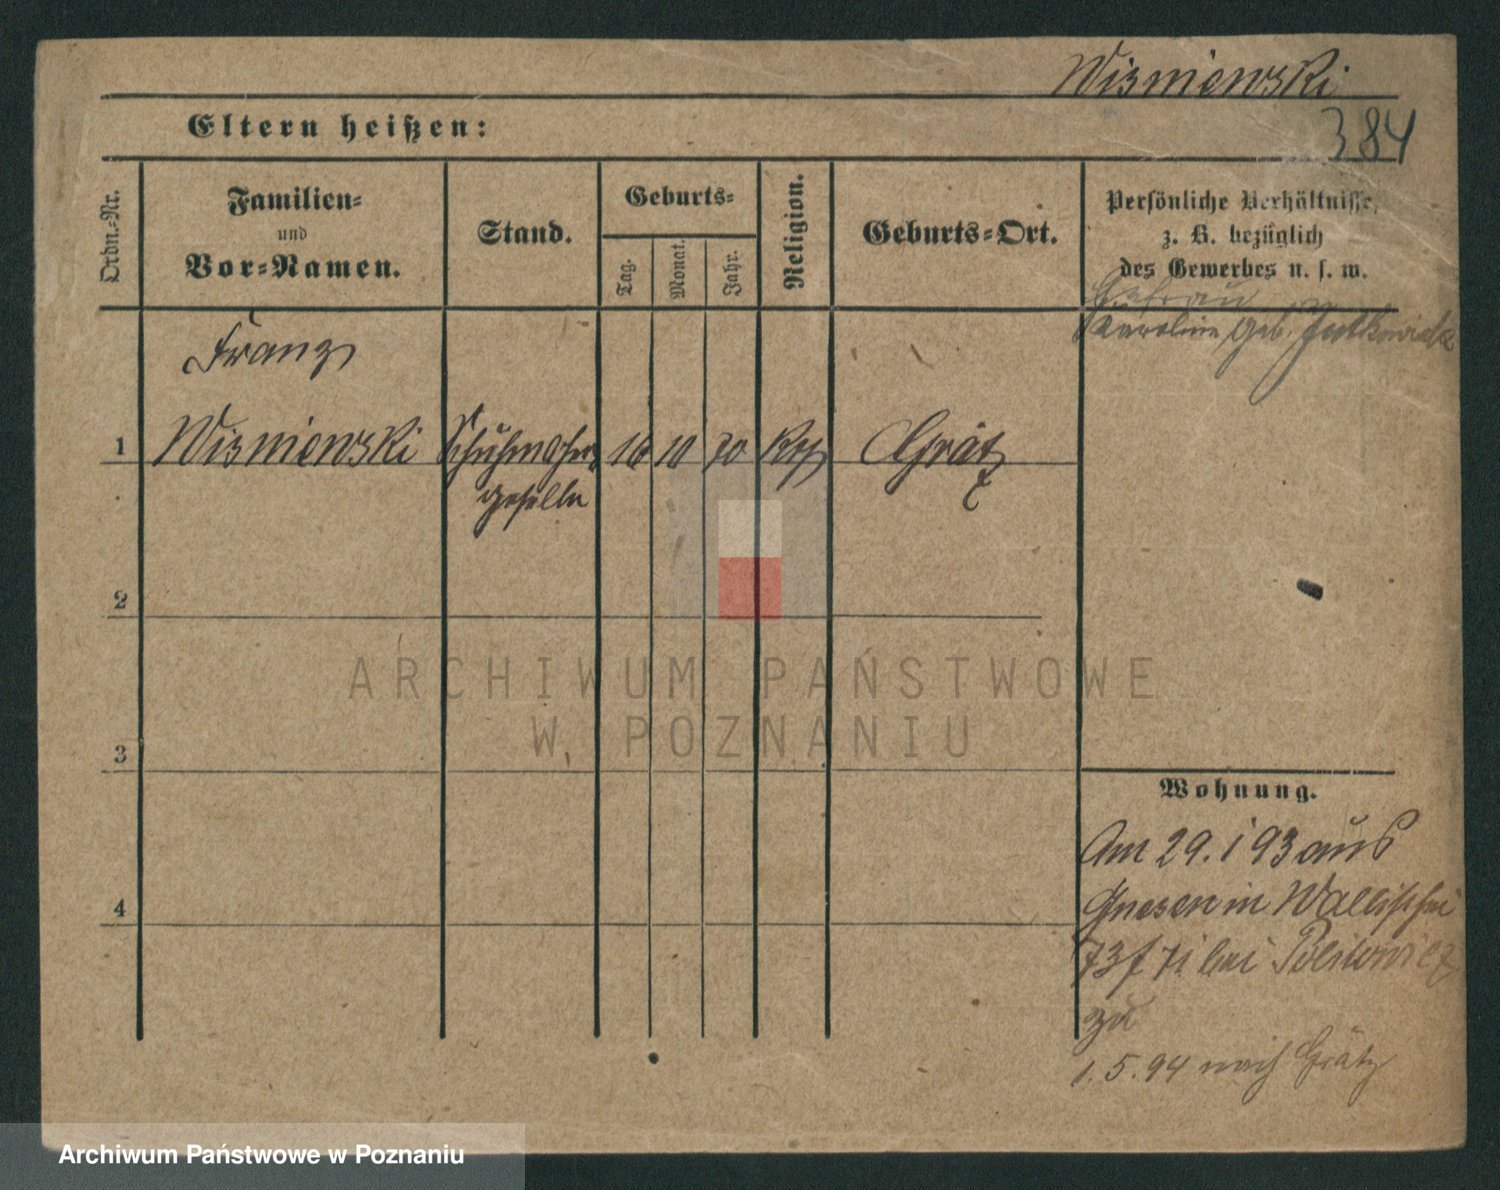 Wisniewski
384
Eltern heißen:
Ordn.-Nr.
Familien-
und
Vor-Namen.
Stand.
Geburts-
Tag.
Monat.
Jahr.
Religion.
Geburts-Ort.
Persönliche Verhältnisse,
z. B. bezüglich
des Gewerbes u. s. w.
Ehefrau
Karoline geb.
Franz
1 Wisniewski Schuhmacher 16 10 70 Kth Grätz
geselle
2
3
4
Wohnung.
Am 29. 1 93 aus
Gnesen in Wallischei
bei
zu
1. 5. 94 nach Grätz
ARCHIWUM PAŃSTWOWE
W POZNANIU
Archiwum Państwowe w Poznaniu